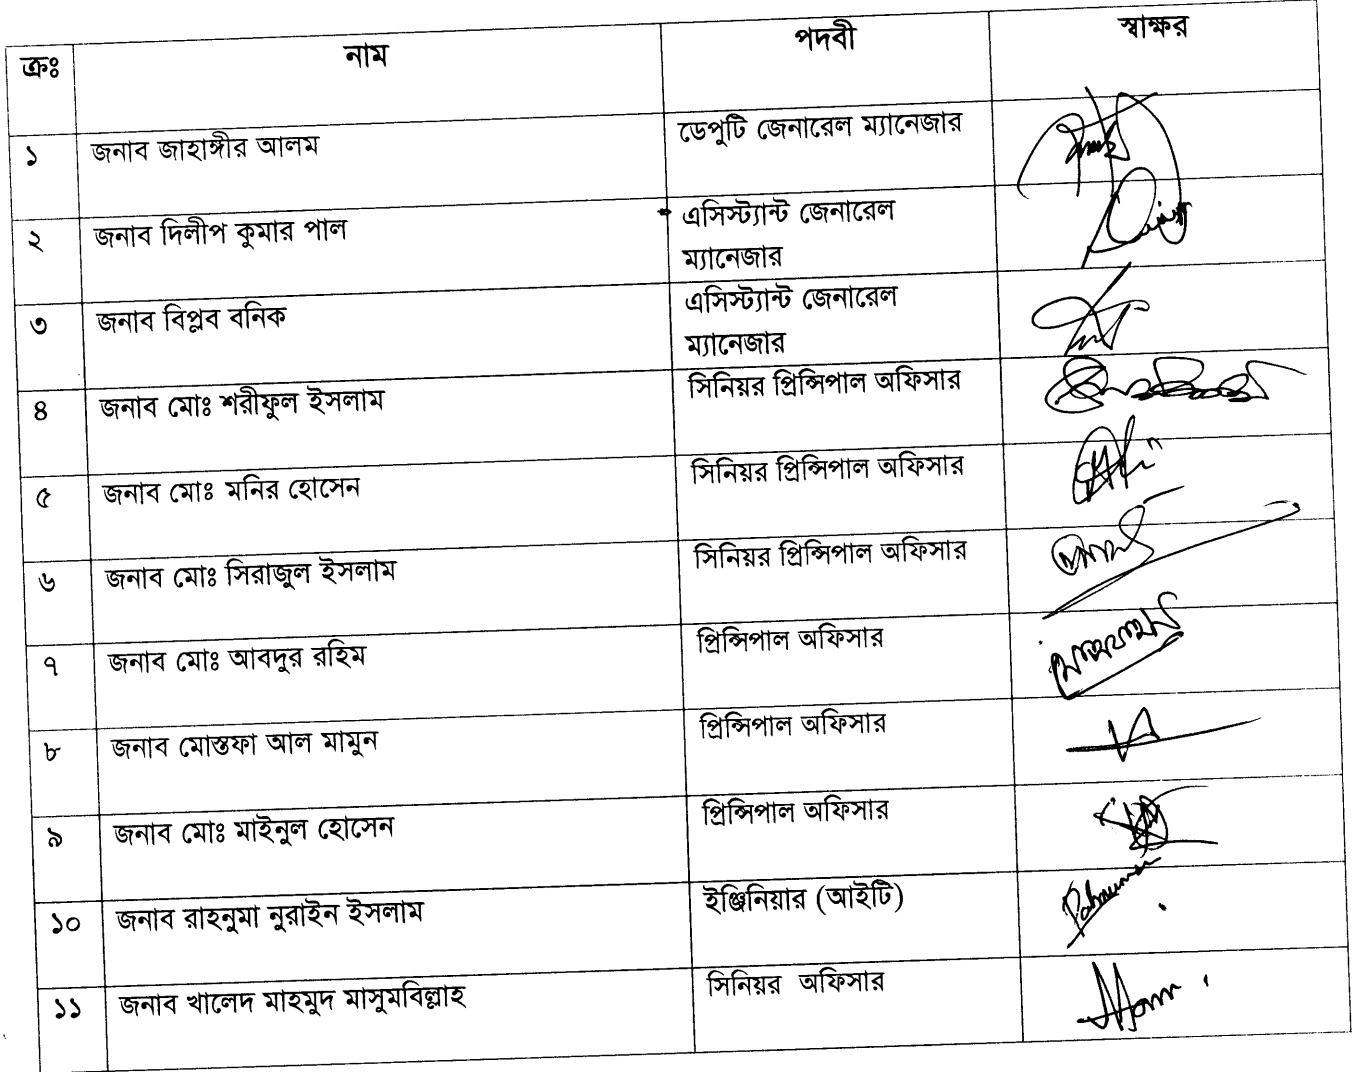 ক্রঃ নাম পদবী স্বাক্ষর
১ জনাব জাহাঙ্গীর আলম ডেপুটি জেনারেল ম্যানেজার
২ জনাব দিলীপ কুমার পাল এসিস্ট্যান্ট জেনারেল
ম্যানেজার
৩ জনাব বিপ্লব বনিক এসিস্ট্যান্ট জেনারেল
ম্যানেজার
৪ জনাব মোঃ শরীফুল ইসলাম সিনিয়র প্রিন্সিপাল অফিসার
৫ জনাব মোঃ মনির হোসেন সিনিয়র প্রিন্সিপাল অফিসার
৬ জনাব মোঃ সিরাজুল ইসলাম সিনিয়র প্রিন্সিপাল অফিসার
৭ জনাব মোঃ আবদুর রহিম প্রিন্সিপাল অফিসার
৮ জনাব মোস্তফা আল মামুন প্রিন্সিপাল অফিসার
৯ জনাব মোঃ মাইনুল হোসেন প্রিন্সিপাল অফিসার
১০ জনাব রাহনুমা নুরাইন ইসলাম ইঞ্জিনিয়ার (আইটি)
১১ জনাব খালেদ মাহমুদ মাসুমবিল্লাহ সিনিয়র অফিসার